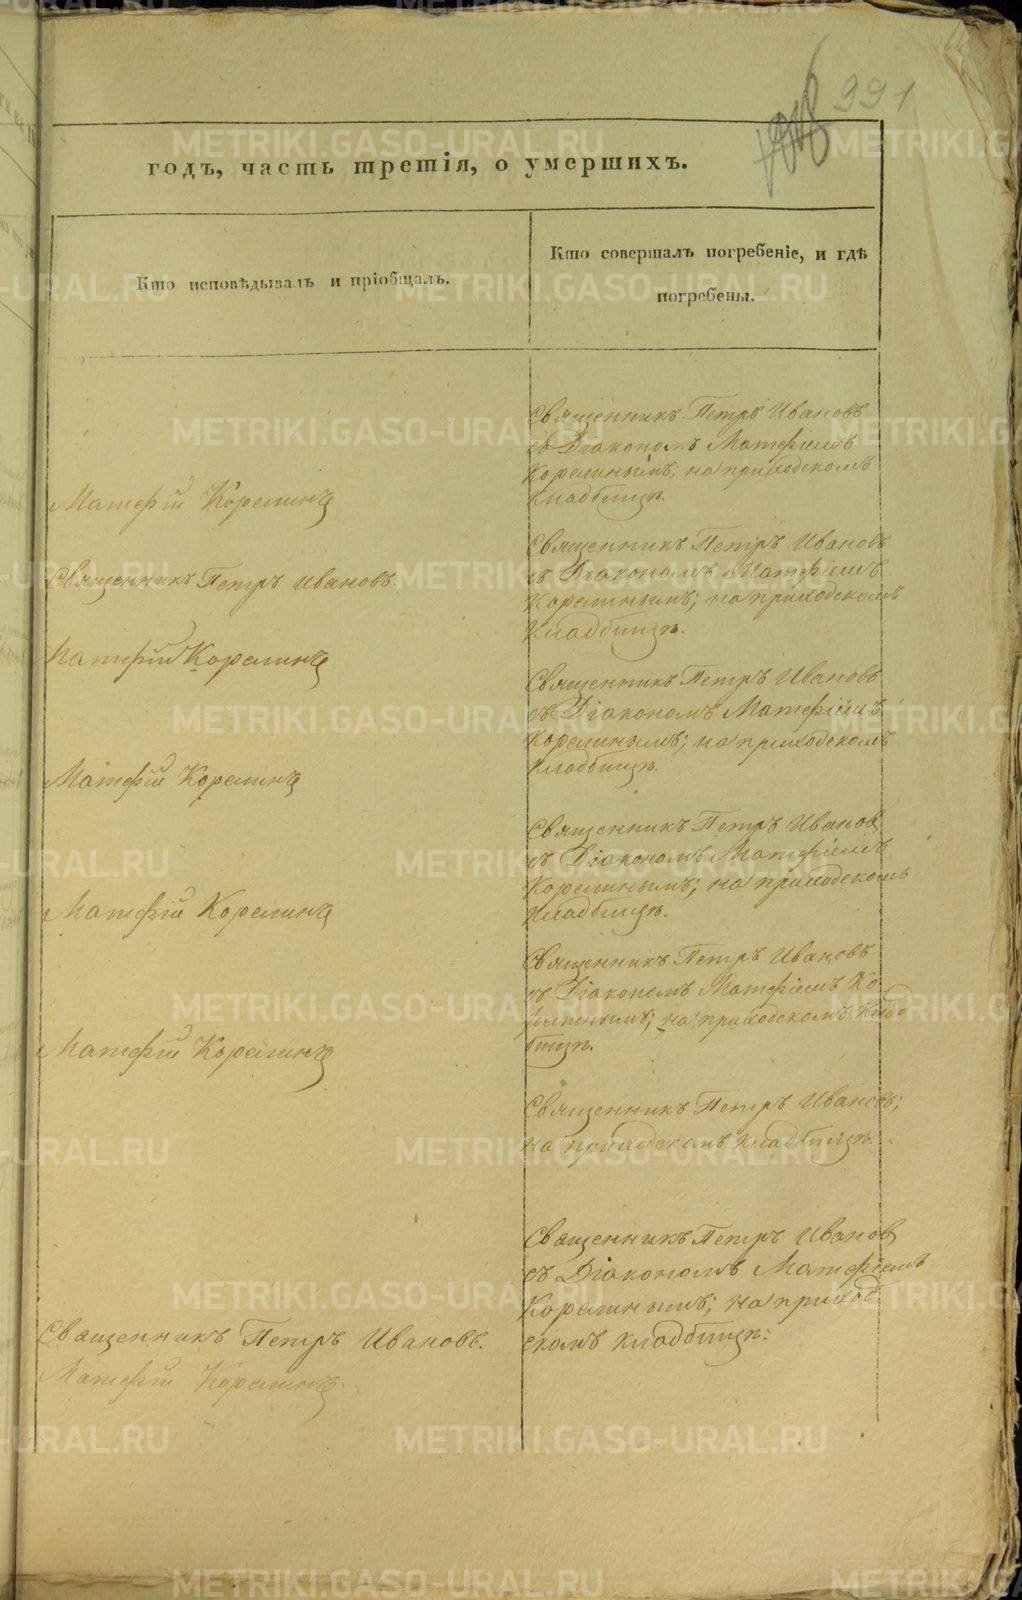 991
годъ, часть третія, о умершихъ.
Кто исповѣдывалъ и пріобщалъ.
Кто совершалъ погребеніе, и гдѣ
погребены.
Священникъ Петръ Ивановъ
съ Діакономъ Матфіемъ
Корелинымъ; на приходскомъ
кладбищѣ.
Матфій Корелинъ
Священникъ Петръ Ивановъ
съ Діакономъ Матфіемъ
Корелинымъ; на приходскомъ
кладбищѣ.
Священникъ Петръ Ивановъ.
Матфій Корелинъ
Священникъ Петръ Ивановъ
съ Діакономъ Матфіемъ
Корелинымъ; на приходскомъ
кладбищѣ.
Матфій Корелинъ
Священникъ Петръ Иванов
съ Діакономъ Матфіемъ
Корелинымъ; на приходскомъ
кладбищѣ.
Матфій Корелинъ
Священникъ Петръ Ивановъ
съ Діакономъ Матфіемъ Ко-
релинымъ; на приходскомъ клад
бищѣ.
Матфій Корелинъ
Священникъ Петръ Ивановъ;
на приходскомъ кладбищѣ.
Священникъ Петръ Иванов
съ Діакономъ Матфіемъ
Корелинымъ; на приход
скомъ кладбищѣ.
Священникъ Петръ Ивановъ.
Матфій Корелинъ
METRIKI.GASO-URAL.RU